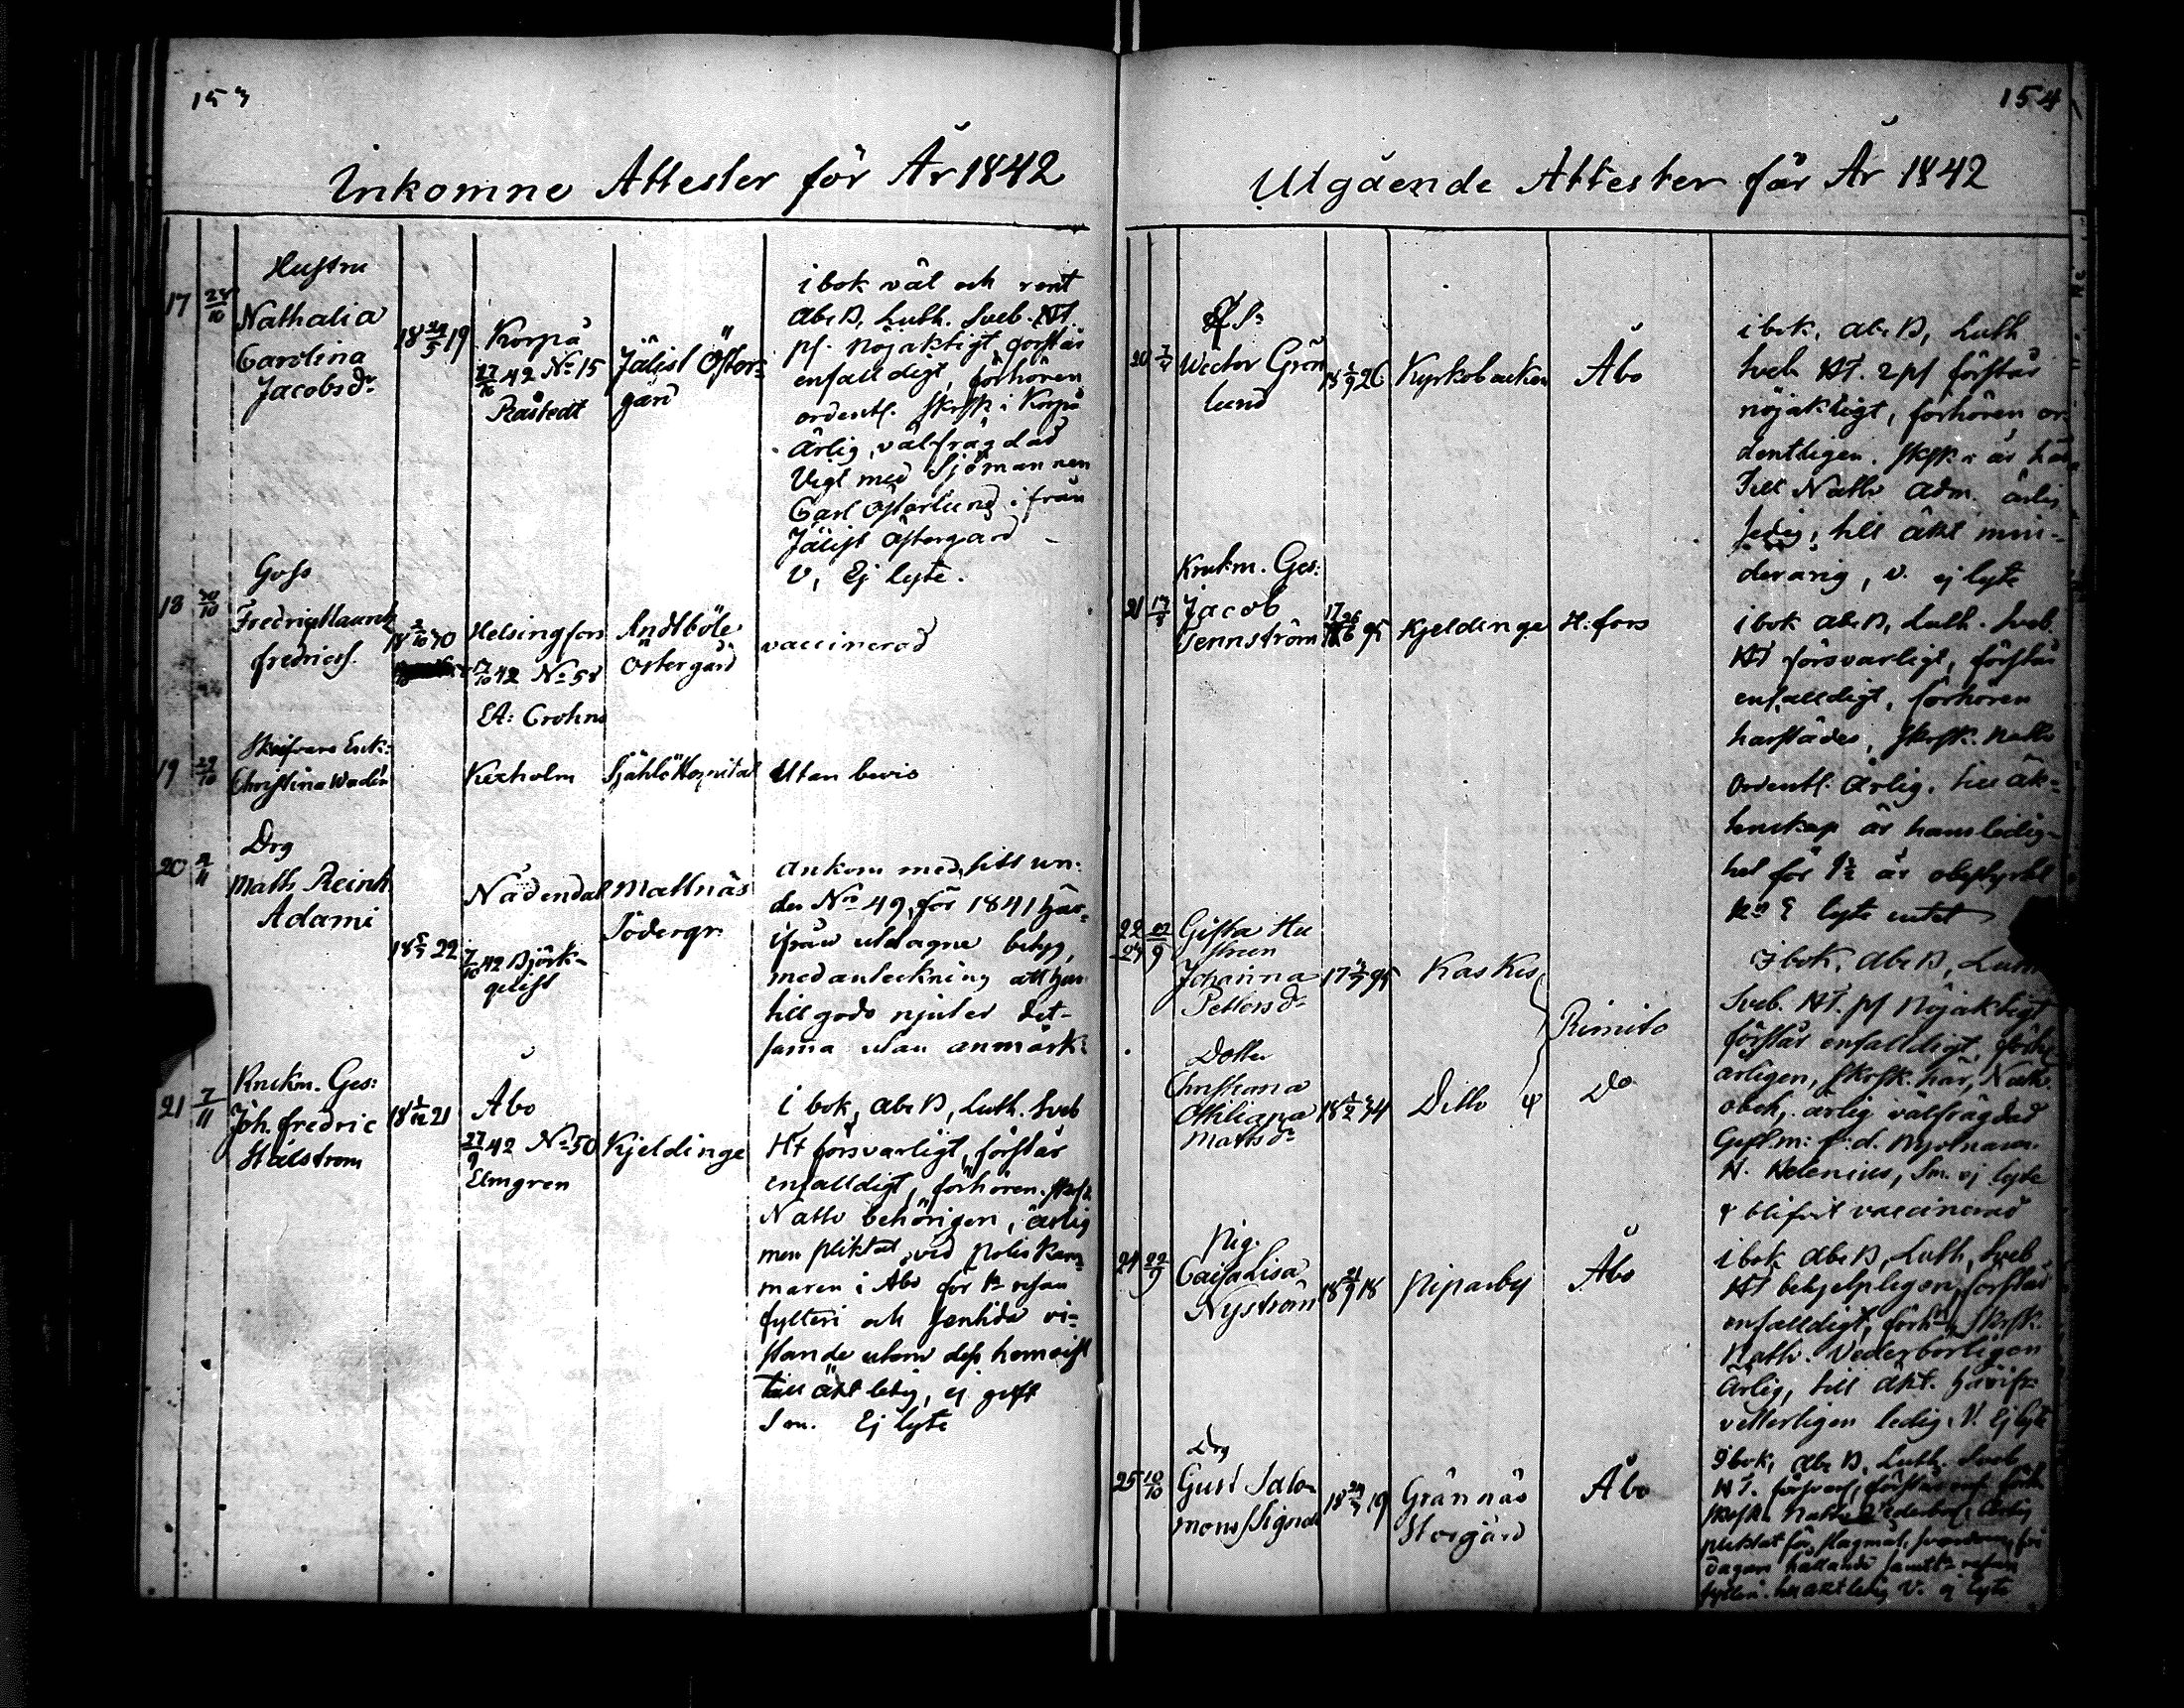 153
Inkomne Attester för År 1842
17 28/10
Hustru
Nathalia
Carolina
Jacobsdr
18 29/5 19
Korpo
42 No 15
Jälist Öster=
gård
i bok väl och rent
Abc B, Luth. Sveb. HT
ps. nöjaktigt, förstår
enfalldigt, förhören
ordentl. skrsk i Korpo
Ärlig, välfrägdad
Vigt med Sjömannen
Carl Österlund ifrån
Jälist Östergård
V, Ej lyte.
18
Goss
Fredric
Fredricss.
Helsingfors
17/10 42 No 58
EA: Crohns
Andtböle
Östergård
vaccinerad
19 29/10
Christina Wadén
Kexholm
Själö Hospital
Utan bevis
20
Drg
Math Reinh
Adami
18 22
Nådendal
7/10 42 Björk-
qvist
Mattnäs
Södergr.
Ankom med sitt un-
der No 49 för 1841 här-
ifrån uttagne betyg,
med anteckning att han
till godo njuter det-
samma utan anmärk:
21 7/11
Knekm. Ges:
Joh. Fredric
Stålström
18 21
Åbo
27/9 42 No 50
Elmgren
Kjeldinge
i bok, Abc B, Luth. Sveb
HT försvarligt, förstår
enfalldigt, förhören. skrsk.
Nattv behörigen, ärlig
men pliktat vid Polis Kam-
maren i Åbo för 1a resan
fylleri och sentida vi-
stande utom dess hemvist
till äkt ledig, ej gift
Sm. Ej lyte
154
Utgående Attester för År 1842
20
Wictor Grön
lund
26
Kyrkobacken
Åbo
i bok, Abc B, Luth
Sveb HT. 2 ps förstår
nöjaktigt, förhören or-
dentligen. skrsk är här
Till Nattv adm. ärlig
ledig, till äkt min-
derårig, v. ej lyte
21
Knekm. Ges:
Jacob
Tennström
95
Kjeldinge
H:fors
i bok Abc B, Luth. Sveb.
HT försvarligt, förstår
enfalldigt, förhören
härstädes, skrsk. Nattv
ordentl. Ärlig. till äk-
tenskap är hans ledig-
het för 1½ år obestyrkt
lyte intet
22 22/9
23
Gifta Hu
strun
Johanna
Pettersdr
17 95
Kaskes
Rimito
I bok, Abc B, Luth
Sveb. HT. ps nöjaktigt
förstår enfalldigt, förh
årligen, skrsk. här, Nattv.
obeh. ärlig välfrägdad
Gift m: f:d.
H. Helenius, Sm. ej lyte
Dotter
Christiana
Ottiliana
Mattsdr
18 34
Ditto
Do
blifvit vaccinerad
24 22/9
Pig.
Cajsa Lisa
Nyström
18 18
Piparby
Åbo
i bok Abc B, Luth, Sveb
HT behjelpligen, förstår
enfalldigt, förh, skrsk.
Nattv. Vederbörligen
Ärlig, till äkt. härifr.
vetterligen ledig. V. Ej lyte
25 10/10
Drg
Gust Salo-
mons
18 19
Grännäs
Storgård
Åbo
I bok, Abc B, Luth. Sveb
HT. försvarl, förstår enf. förh
skrsk. Nattv Vederbörl. Ärlig
pliktat för slagsmål,
dagen hållande samt 1a resan
fylleri. till äkt ledig V. ej lyte